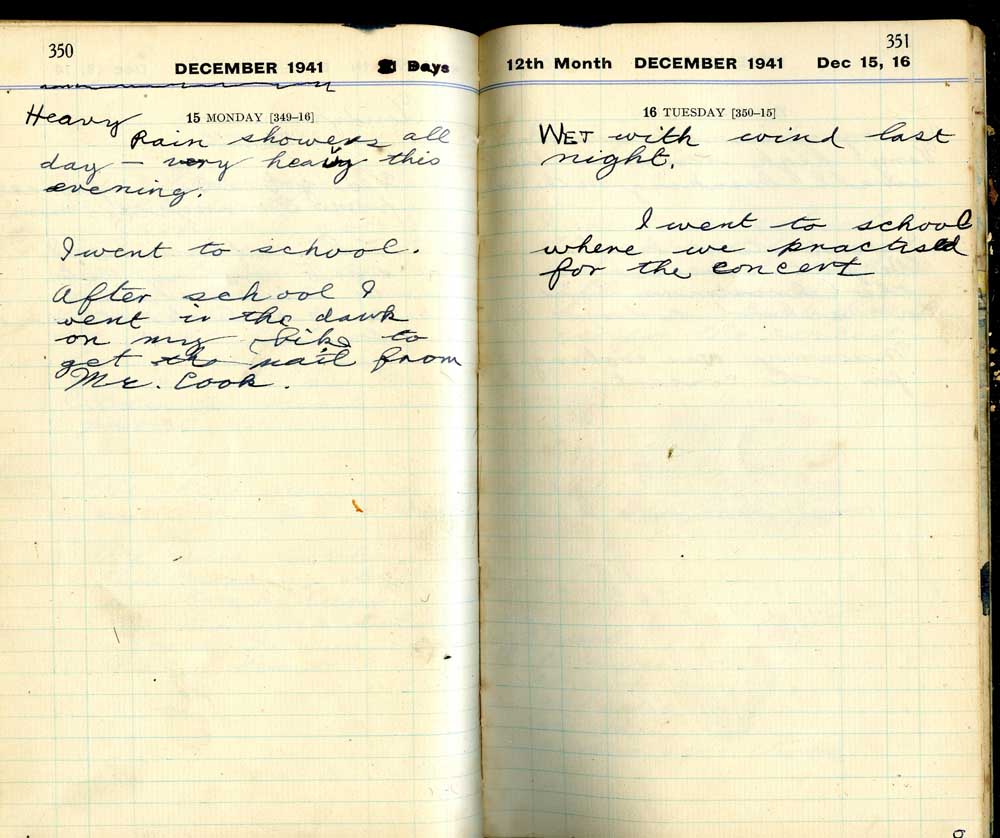 350
DECEMBER 1941 31 Days
15 MONDAY [349–16]
Heavy
Rain showers all
day – very heavy this
evening.
I went to school.
After school I
went in the dark
on my bike to
get the mail from
Mr. Cook.
351
12th Month DECEMBER 1941 Dec 15, 16
16 TUESDAY [350–15]
WET with wind last
night.
I went to school
where we practised
for the concert